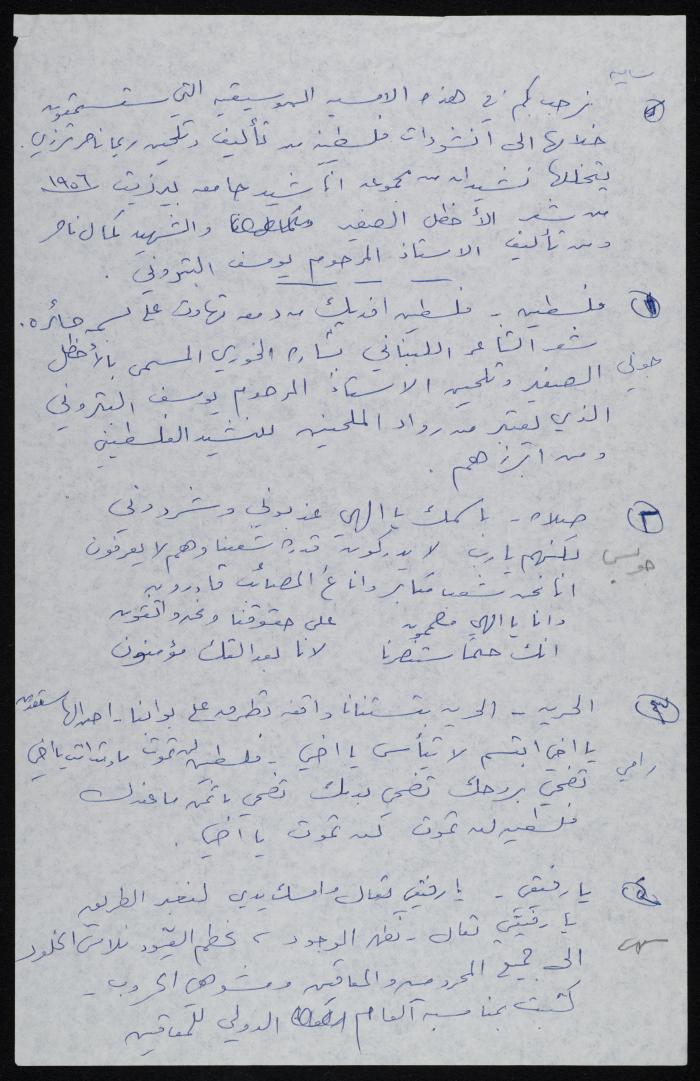 نرحب بكم في هذه الامسيه الموسيقيه التي ستستمعون
خلالها الى انشودات فلسطينيه من تأليف وتلحين ريما ناصر ترزي.
يتخللها نشيدان من مجموعه اناشيد جامعه بيرزيت ١٩٥٦
من شعر الأخطل الصغير والشهيد كمال ناصر
ومن تأليف الاستاذ المرحوم يوسف البتروني.
١ فلسطين - فلسطين افديك من دمعه تهاوت على بسمه حائره.
شعر الشاعر اللبناني بشاره الخوري المسمى بالأخطل
جوني
الصغير وتلحين الاستاذ المرحوم يوسف البتروني
الذي يعتبر من رواد الملحنين للنشيد الفلسطيني
ومن ابرزهم.
٢ صلاه - باسمك يا الهي عذبوني وشردوني
لكنهم يا رب لا يدركون قدرة شعبنا وهم لا يعرفون
انا نحن شعب مثابر وانا على المصائب قادرون
وانا يا الهي مصممون على حقوقنا ونحن واثقون
انك حتما ستنصرنا لانا بعدالتك مؤمنون
٣ الحريه - الحريه بتستنانا واقفه تطرق على بوابنا -
يا اخي ابتسم لا تيأس يا اخي - فلسطين لن تموت ما دمت انت يا اخي
رامي
تضحي بروحك تضحي بدمك تضحي باثمن ما عندك
فلسطين لن تموت لن تموت يا اخي.
يا رفيقي - يا رفيقي تعال وامسك يدي لنعبر الطريق
يا رفيقي تعال - نطهر الوجود، نحطم القيود نلامس الخلود
الى جميع المحرومين والمعاقين ومشوهي الحروب -
كتبت بمناسبه العام الدولي للمعاقين